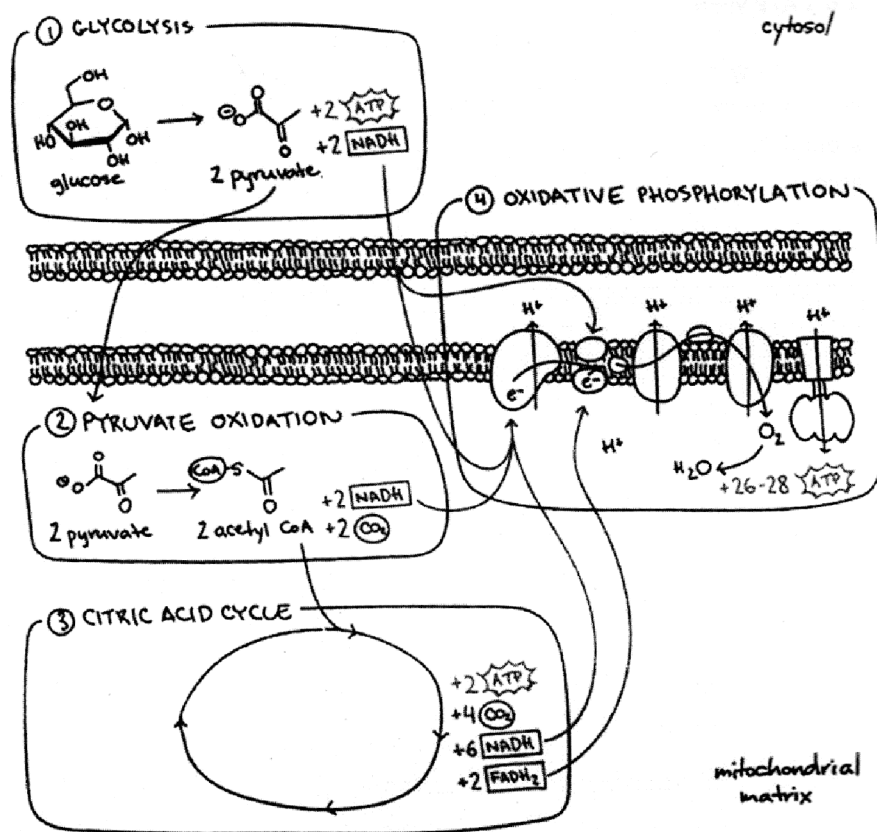 ① GLYCOLYSIS
cytosol
OH
O
HO
OH
OH
OH
glucose
O
⊖O
O
2 pyruvate
+2 ATP
+2 NADH
④ OXIDATIVE PHOSPHORYLATION
H+
H+
H+
H+
e-
e-
H+
O₂
H₂O
+26-28 ATP
② PYRUVATE OXIDATION
O
⊖O
O
2 pyruvate
CoA-S
O
2 acetyl CoA
+2 NADH
+2 CO₂
③ CITRIC ACID CYCLE
+2 ATP
+4 CO₂
+6 NADH
+2 FADH₂
mitochondrial
matrix